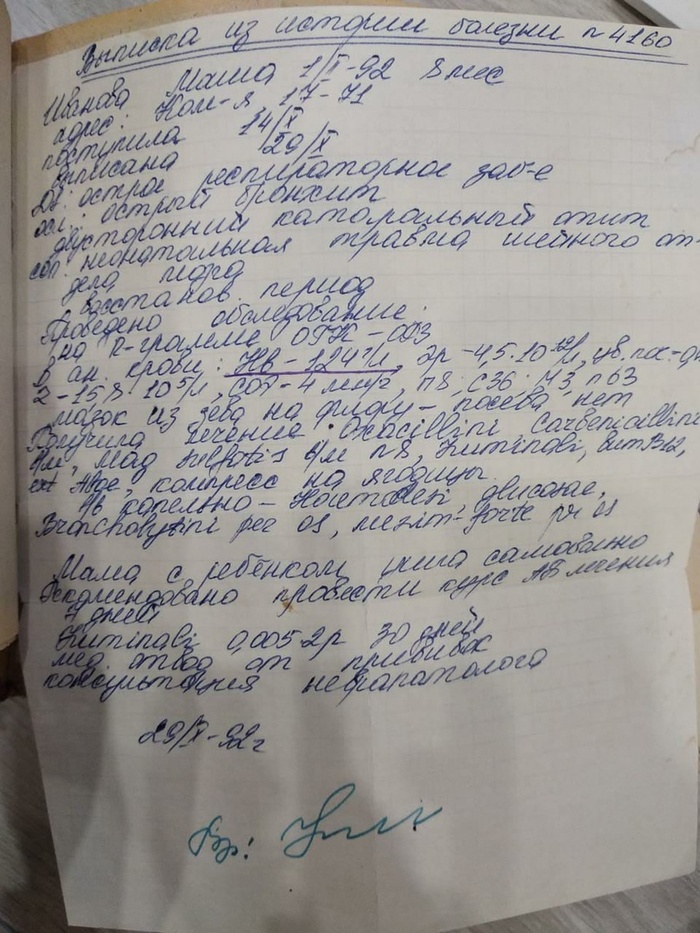 Выписка из истории болезни n 4160
Иванова Маша 1/II-92 8 мес
адрес: Ком-я, 17-71
поступила 14/X
выписана 29/X
Ds: острое респираторное заб-е
осл: острый бронхит
двусторонний катаральный отит
соп: неонатальная травма шейного от-
дела
восстанов. период
Проведено обследование:
на R-грамме ОГК -
в ан. крови: Hb - 124 г/л, Эр - 4,5·10¹²/л, цв. пос-
СОЭ - 4 мм/г, п 8, с 36
мазок из зева на флору - посева нет
Получила лечение: Oxacillini Carbenicillini
в/м, Mag sulfatis в/м n 8, Vit B12,
ext Aloe, компресс на ягодицы.
в/в капельно -
Broncholytini per os, mezim-forte per os
Мама с ребенком ушла самовольно
Рекомендовано провести курс АБ лечения
7 дней
0,005 2 р 30 дней
мед отвод от прививок
консультация
29/X-92 г
Вр: